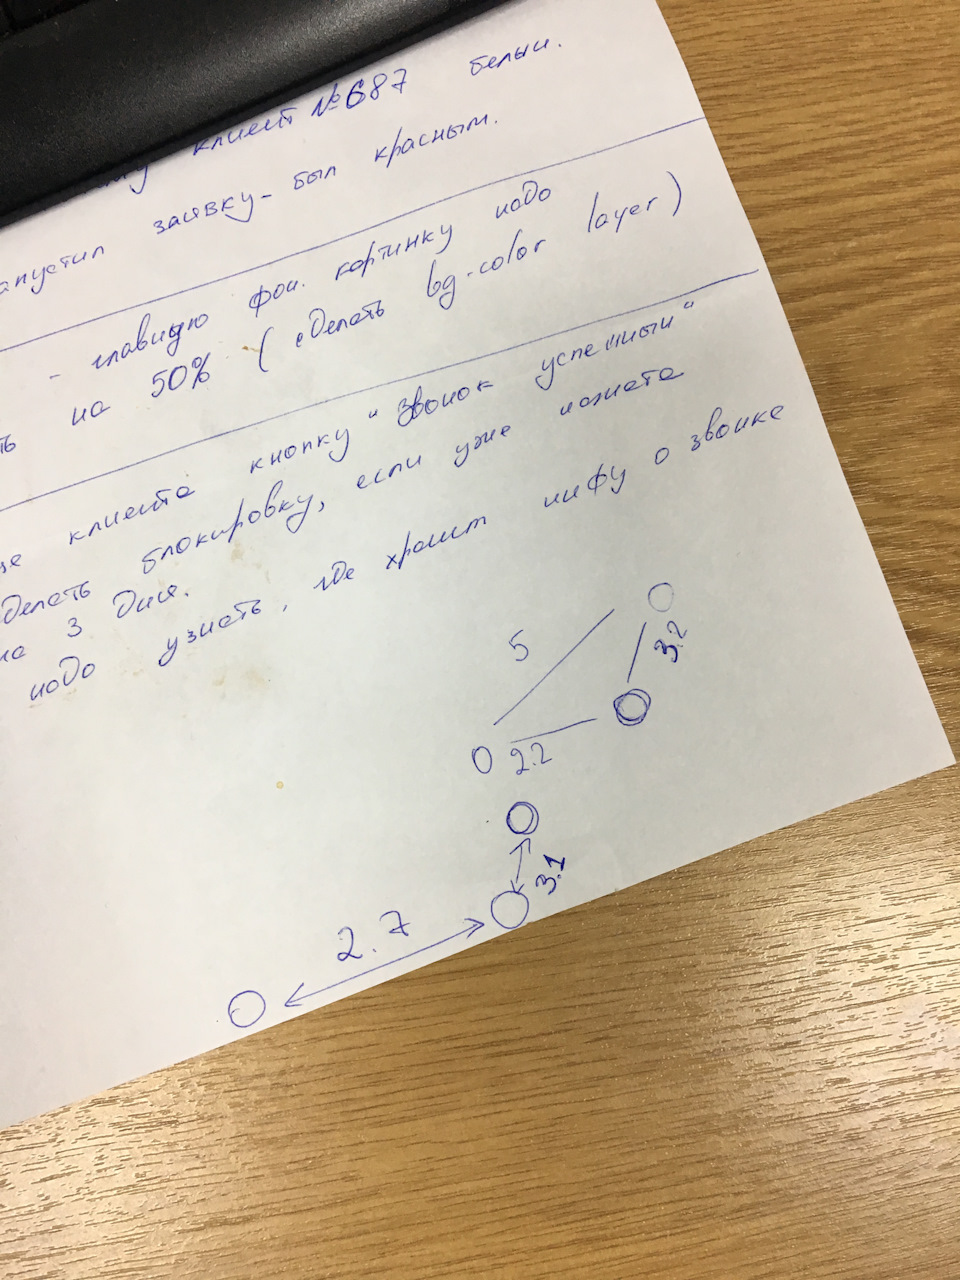 клиент №687 белый.
апустил заявку - был красным.
- главную фон. картинку надо
ть на 50% (сделать bg-color layer)
це клиента кнопку "Звонок успешный"
делать блокировку, если уже нажата
на 3 дня.
надо узнать, где хранит инфу о звонке
5
3.2
2.2
3.1
2.7